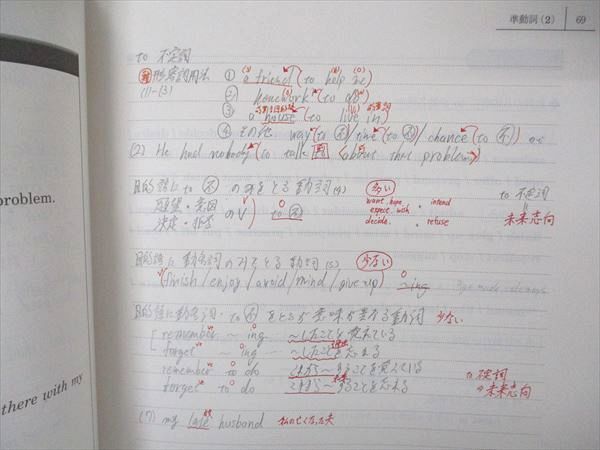 準動詞(2) 69
to 不定詞
形容詞用法 ① a friend (to help me)
(1)-(3) ② homework (to do)
③ a house (to live in)
④ その他. way (to 不) time (to 不) / chance (to 不) etc
(2) He had nobody (to talk (about that problem))
problem.
目的語に to 不 のみをとる動詞(4) 多い to 不定詞
願望・意図 のV to 不 want, hope, intend
expect, wish
決定・拒否 decide, refuse 未来志向
目的語に動名詞のみをとる動詞(5) 少ない
(finish / enjoy / avoid / mind / give up) ~ing
目的語に動名詞・to 不 をとるが意味が異なる動詞 少ない
remember ~ing ~したことを覚えている
forget ~ing ~したことを忘れる
remember to do これから~することを覚えている to 不定詞
forget to do これから~することを忘れる ⇒未来志向
there with my
(7) my late husband 私の亡くなった夫